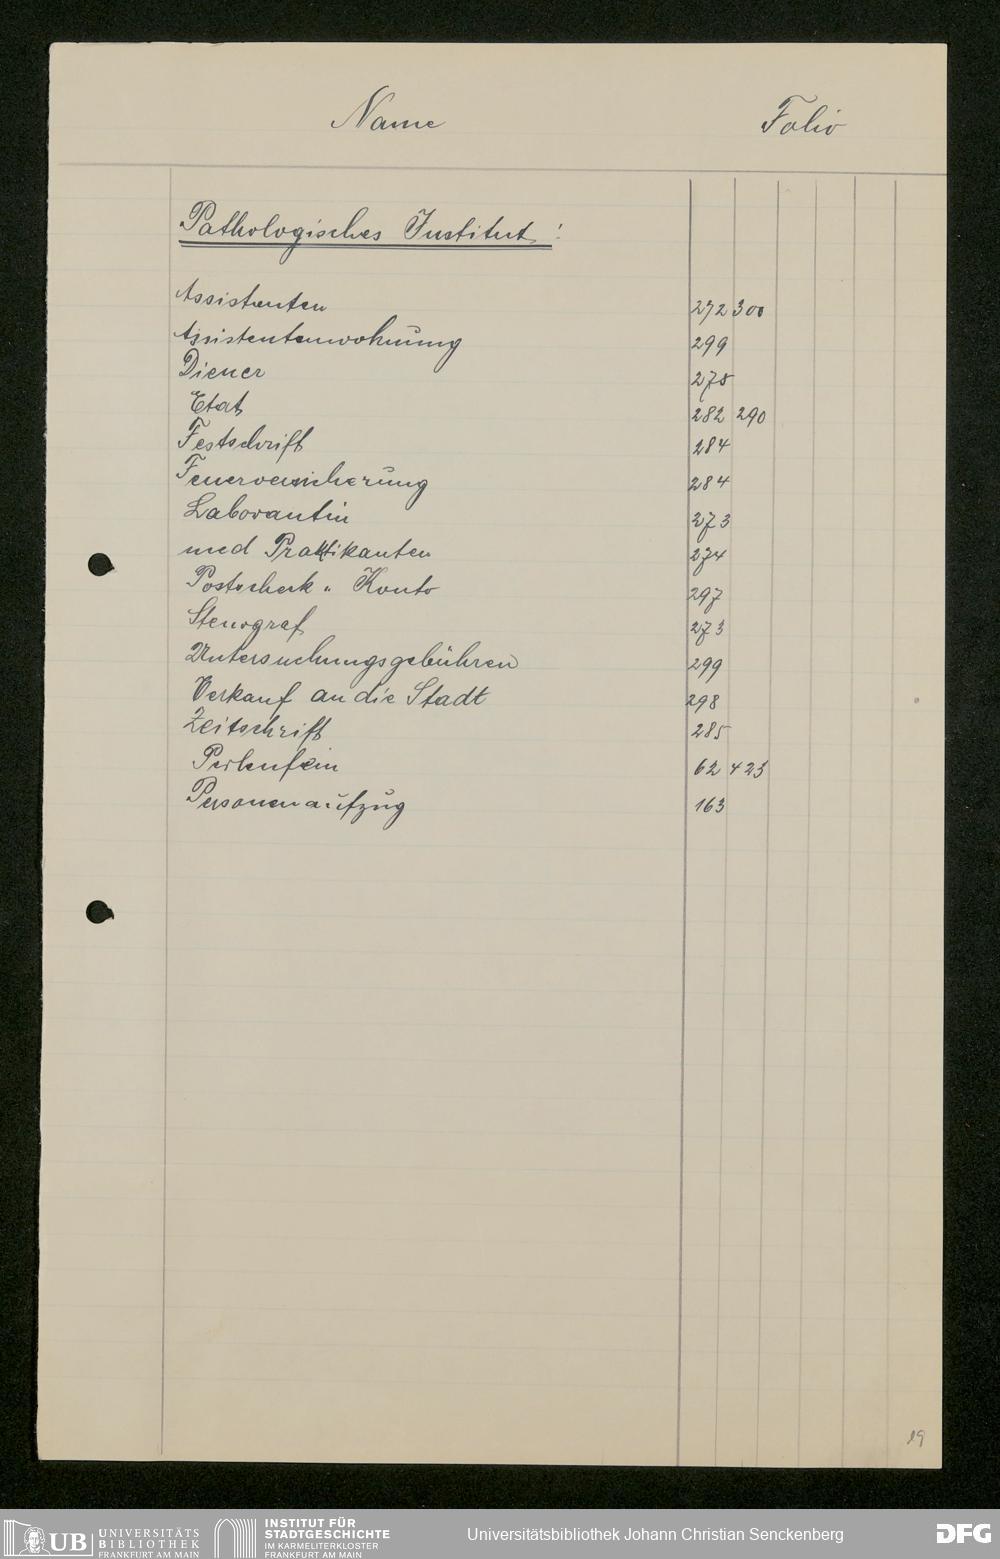 Name Folio
Pathologisches Institut:
Assistenten 272 300
Assistentenwohnung 299
Diener 275
Etat 282 290
Festschrift 284
Feuerversicherung 284
Laborantin 273
med Praktikanten 274
Postscheck " Konto 297
Stenograf 273
Untersuchungsgebühren 299
Verkauf an die Stadt 298
Zeitschrift 285
62 423
Personenaufzug 163
19
UB UNIVERSITÄTS
BIBLIOTHEK
FRANKFURT AM MAIN
INSTITUT FÜR
STADTGESCHICHTE
IM KARMELITERKLOSTER
FRANKFURT AM MAIN
Universitätsbibliothek Johann Christian Senckenberg
DFG